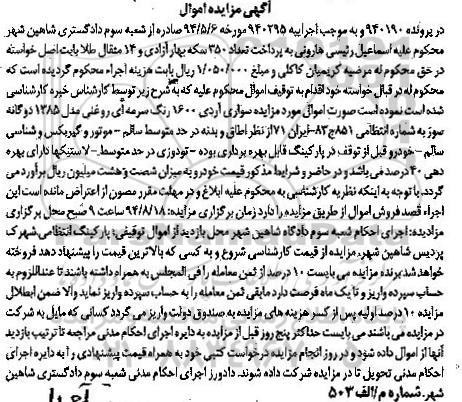 آگهی مزایده اموال
در پرونده ۹۴۰۱۹۰ و به موجب اجراییه ۹۴۰۲۹۵ مورخه ۹۴/۵/۶ صادره از شعبه سوم دادگستری شاهین شهر
محکوم علیه اسماعیل رئیسی هارونی به پرداخت تعداد ۳۵۰ سکه بهار آزادی و ۱۴ مثقال طلا بابت اصل خواسته
در حق محکوم له مرضیه کریمیان کاکلی و مبلغ ۱/۰۵۰/۰۰۰ ریال بابت هزینه اجراء محکوم گردیده است که
محکوم له در قبال خواسته خود اقدام به توقیف اموال محکوم علیه که به شرح زیر توسط کارشناس خبره کارشناسی
شده است نموده است صورت اموال مورد مزایده سواری آردی ۱۶۰۰ رنگ سرمه ای روغنی مدل ۱۳۸۵ دوگانه
سوز به شماره انتظامی ۸۵۱ج۸۳-ایران ۷۱ از نظر اطاق و بدنه در حد متوسط سالم - موتور و گیربکس و شناسی
سالم - خودرو قبل از توقف در پارکینگ قابل بهره برداری بوده - تودوزی در حد متوسط - لاستیکها دارای بهره
دهی ۴۰ درصد می باشد و در حاضر و شرایط مذکور قیمت خودرو به میزان شصت و هشت میلیون ریال برآورد می
گردد. با توجه به اینکه نظریه کارشناسی به محکوم علیه ابلاغ و در مهلت مقرر مصون از اعتراض مانده است این
اجراء قصد فروش اموال از طریق مزایده را دارد زمان برگزاری مزایده: ۹۴/۸/۱۸ ساعت ۹ صبح محل برگزاری
مزایده: اجرای احکام شعبه سوم دادگاه شاهین شهر محل بازدید از اموال توقیفی: پارکینگ انتظامی شهرک
پردیس شاهین شهر. مزایده از قیمت کارشناسی شروع و به کسی که بالاترین قیمت را پیشنهاد دهد فروخته
خواهد شد برنده مزایده می بایست ۱۰ درصد از ثمن معامله را فی المجلس به همراه داشته باشند تا عنداللزوم به
حساب سپرده واریز و تا یک ماه فرصت دارد مابقی ثمن معامله را به حساب سپرده واریز نماید والا ضمن ابطال
مزایده ۱۰ درصد اولیه پس از کسر هزینه های مزایده به صندوق دولت واریز می گردد کسانی که مایل به شرکت
در مزایده می باشند می بایست حداکثر پنج روز قبل از مزایده به دایره اجرای احکام مدنی مراجعه تا ترتیب بازدید
آنها از اموال داده شود و در روز انجام مزایده درخواست کتبی خود به همراه قیمت پیشنهادی را به دایره اجرای
احکام مدنی تحویل تا در مزایده شرکت داده شوند. دادورز اجرای احکام مدنی شعبه سوم دادگستری شاهین
شهر. شماره م/الف ۵۰۳